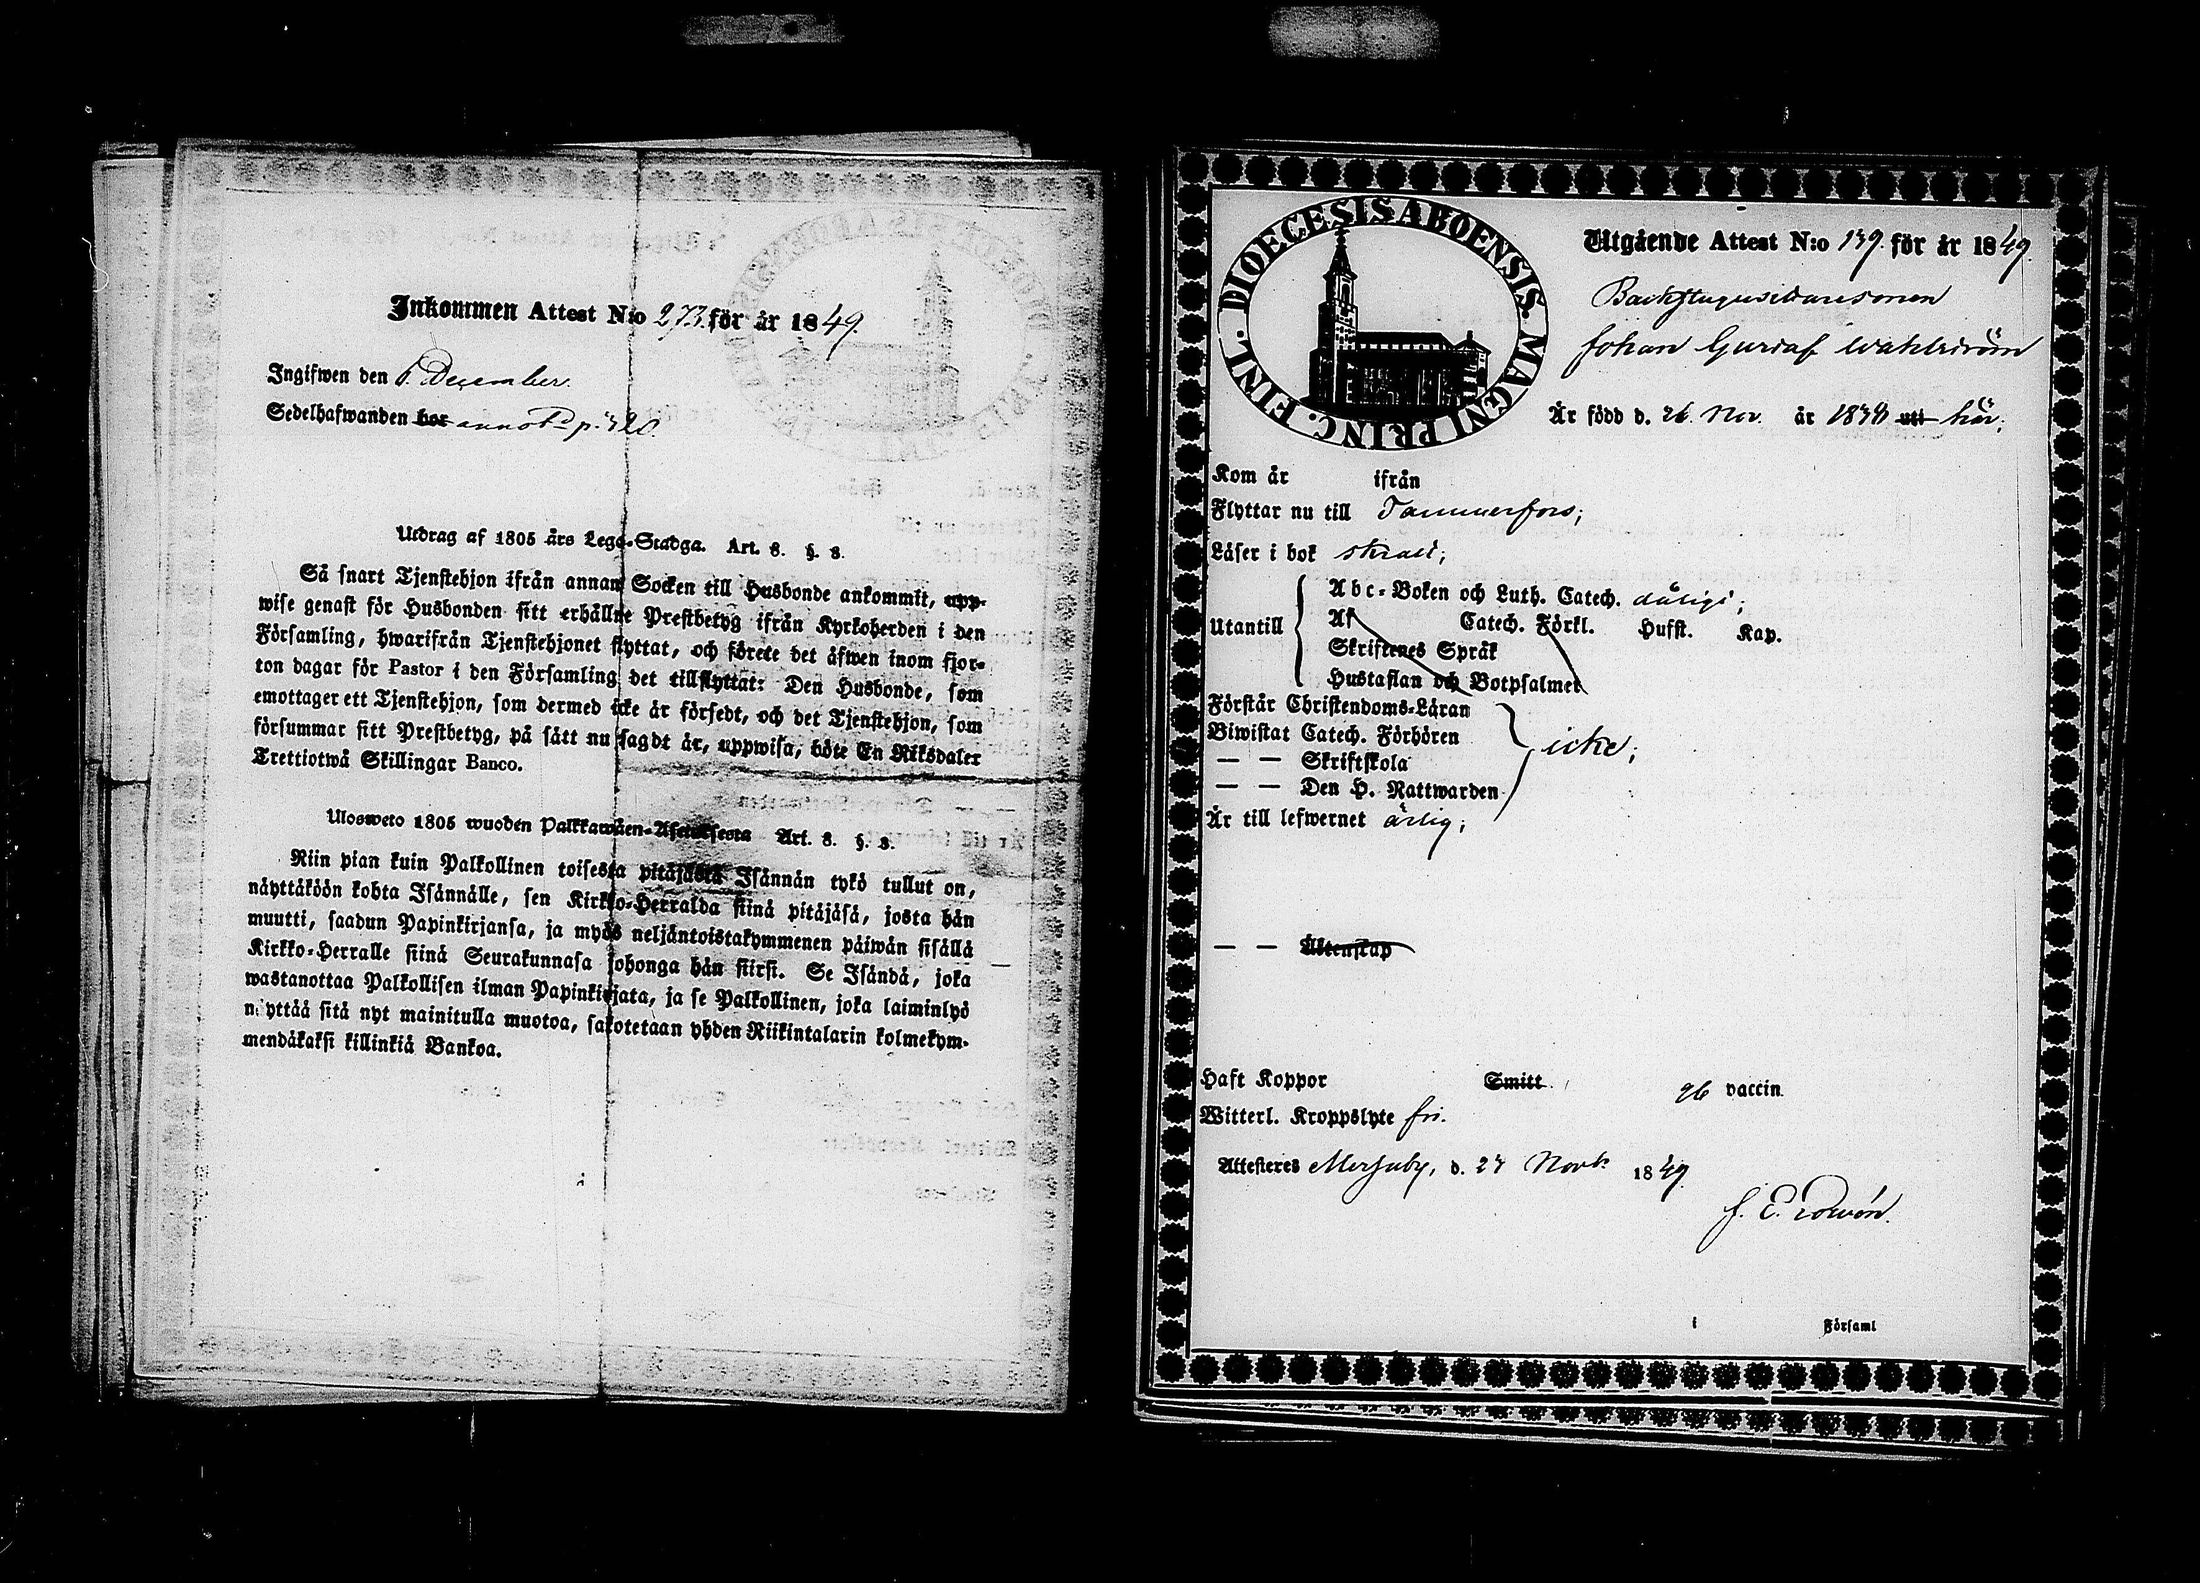 Inkommen Attest N:o 273. för år 1849.
Ingifwen den 6. December.
Sedelhafwanden bor annot. p. 320.
Utdrag af 1805 års Lego-Stadga. Art. 8. §. 8.
Så snart Tjenstehjon ifrån annan Socken till Husbonde ankommit, upp-
wise genast för Husbonden sitt erhållne Prestbetyg ifrån Kyrkoherden i den
Församling, hwarifrån Tjenstehjonet flyttat, och förete det äfwen inom fjor-
ton dagar för Pastor i den Församling det tillflyttat: Den Husbonde, som
emottager ett Tjenstehjon, som dermed icke är försedt, och det Tjenstehjon, som
försummar sitt Prestbetyg, på sätt nu sagdt är, uppwisa, böte En Riksdaler
Trettiotwå Skillingar Banco.
Ulosweto 1805 wuoden Palkkawäen-Asetuksesta Art. 8. §. 8.
Niin pian kuin Palkollinen toisesta pitäjästä Isännän tykö tullut on,
näyttäköön kohta Isännälle, sen Kirkko-Herralda siinä pitäjäsä, josta hän
muutti, saadun Papinkirjansa, ja myös neljäntoistakymmenen päiwän sisällä
Kirkko-Herralle siinä Seurakunnasa johonga hän siirsi. Se Isändä, joka
wastanottaa Palkollisen ilman Papinkirjata, ja se Palkollinen, joka laiminlyö
näyttää sitä nyt mainitulla muotoa, sakotetaan yhden Riikintalarin kolmekym-
mendäkaksi killinkiä Bankoa.
DIOECESIS ABOENSIS. MAGNI PRINC. FINL.
Utgående Attest N:o 139. för år 1849.
Backstugusittaresonen
Johan Gustaf Wahlström
Är född d. 26. Nov. år 1838 uti här;
Kom år ifrån
Flyttar nu till Tammerfors;
Läser i bok
Utantill
Abc-Boken och Luth. Catech. dåligt;
Af Catech. Förkl. Husst. Kap.
Skriftenes Språk
Hustaflan och Botpsalmer
Förstår Christendoms-Läran
Biwistat Catech. Förhören icke;
— — Skriftskola
— — Den H. Nattwarden
Är till lefwernet ärlig;
— — Äktenskap
Haft Koppor Smitt vaccin.
Witterl. Kroppslyte fri.
Attesteres d. 27 Novb. 1849.
i Församl